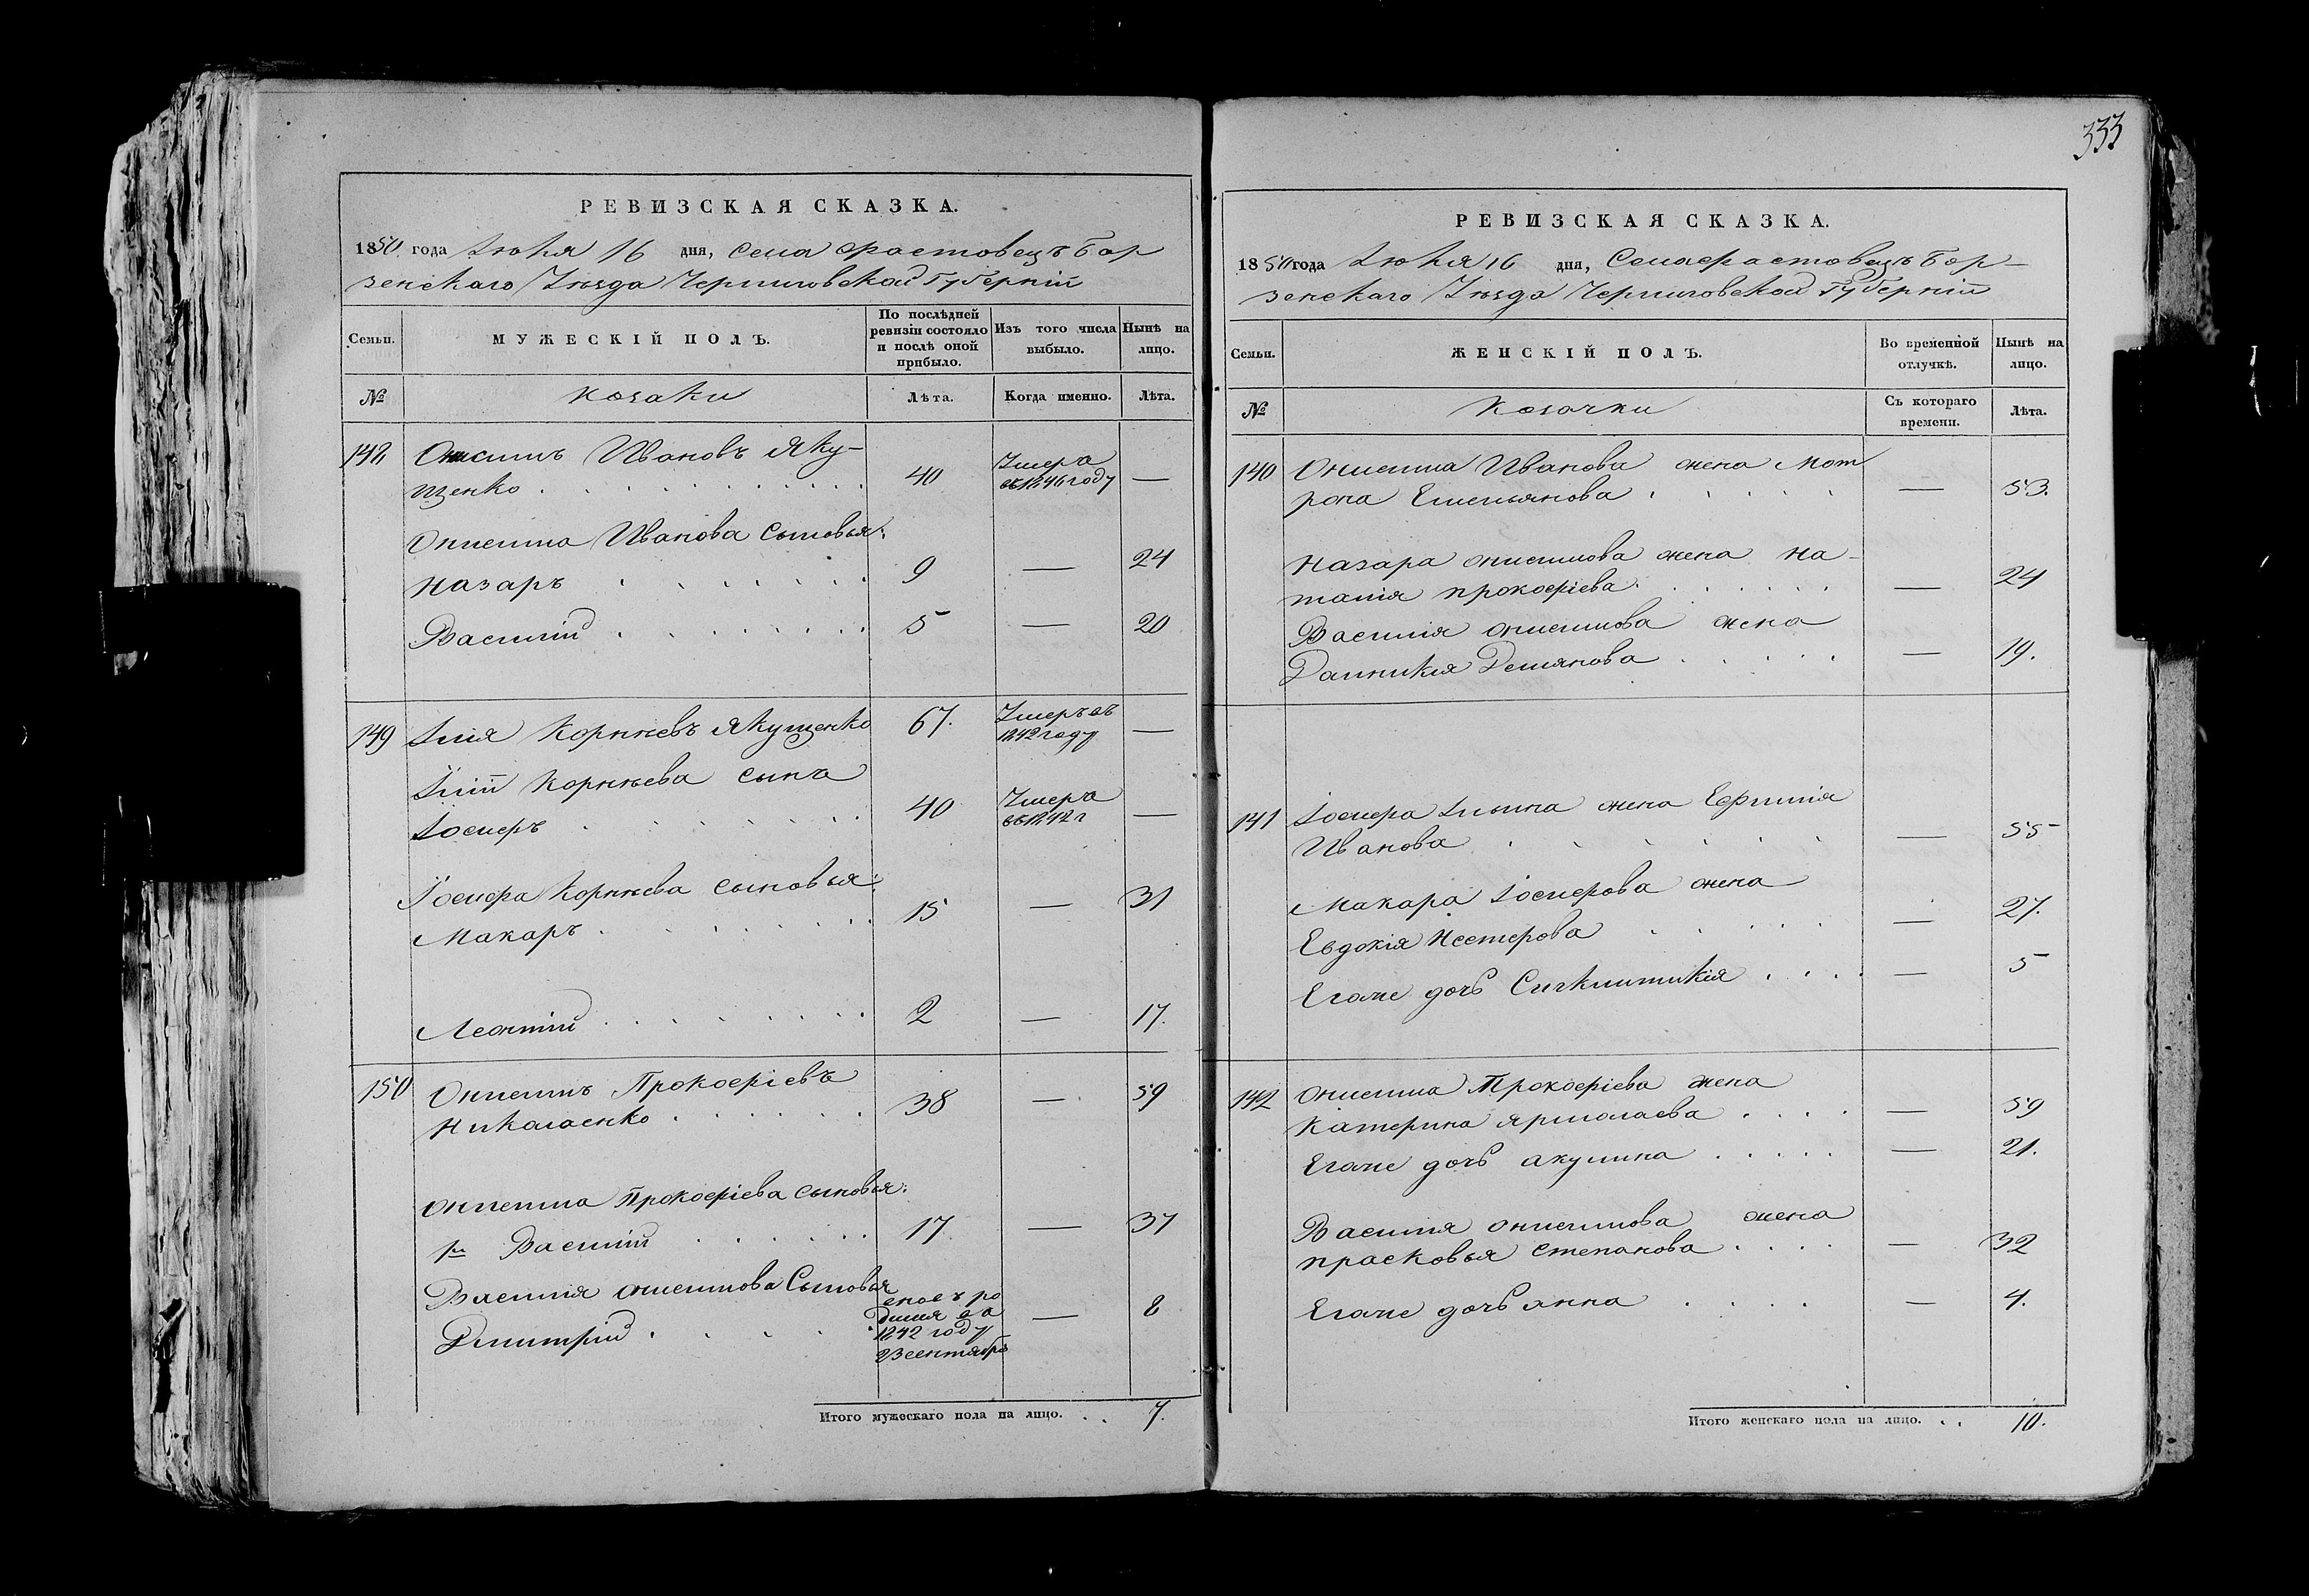 РЕВИЗСКАЯ СКАЗКА.
1850 года Іюля 16 дня, Села Фастовецъ Бор
зенскаго Уѣзда Черниговской Губерніи
Семьи.
МУЖЕСКІЙ ПОЛЪ.
По послѣдней ревизіи состояло и послѣ оной прибыло.
Изъ того числа выбыло.
Нынѣ на лицо.
№
Козаки
Лѣта.
Когда именно.
Лѣта.
148 Онисимъ Ивановъ Яку-
щенко . . . 40 Умеръ въ 1846 году —
Онисима Иванова сыновья:
Назаръ . . . 9 — 24
Василій . . . 5 — 20
149 Илія Корнѣевъ Якущенко 67. Умеръ въ 1842 году —
Иліи Корнѣева сынъ
Іосифъ . . . 40 Умеръ въ 1842 г —
Іосифа Корнѣева сыновья:
Макаръ . . . 15 — 31
Леонтій . . . 2 — 17.
150 Онисимъ Прокофіевъ
Николаенко . . . 38 — 59
Онисима Прокофіева сыновья:
1й Василій . . . 17 — 37
Василія Онисимова Сыновья
Дмитрій . . . 1842 году 23 сентября — 8
Итого мужескаго пола на лицо. . . 7.
333
РЕВИЗСКАЯ СКАЗКА.
1850 года Іюля 16 дня, Села Фастовецъ Бор-
зенскаго Уѣзда Черниговской Губерніи
Семьи.
ЖЕНСКІЙ ПОЛЪ.
Во временной отлучкѣ.
Нынѣ на лицо.
№
Козачки
Съ котораго времени.
Лѣта.
140 Онисима Иванова жена Мот
рона Емельянова . . . — 53.
Назара Онисимова жена На-
талія Прокофіева . . . — 24
Василія Онисимова жена
Домникія Демянова . . . — 19.
141 Іосифа Ильина жена Ефимія
Иванова . . . — 55
Макара Іосифова жена
Евдокія Нестерова . . . — 27.
Егоже дочь . . . — 5
142 Онисима Прокофіева жена
Катерина Ярмолаева . . . — 59
Егоже дочь Акулина . . . — 21.
Василія Онисимова жена
Прасковья Степанова . . . — 32
Егоже дочь Анна . . . — 4.
Итого женскаго пола на лицо. . . 10.